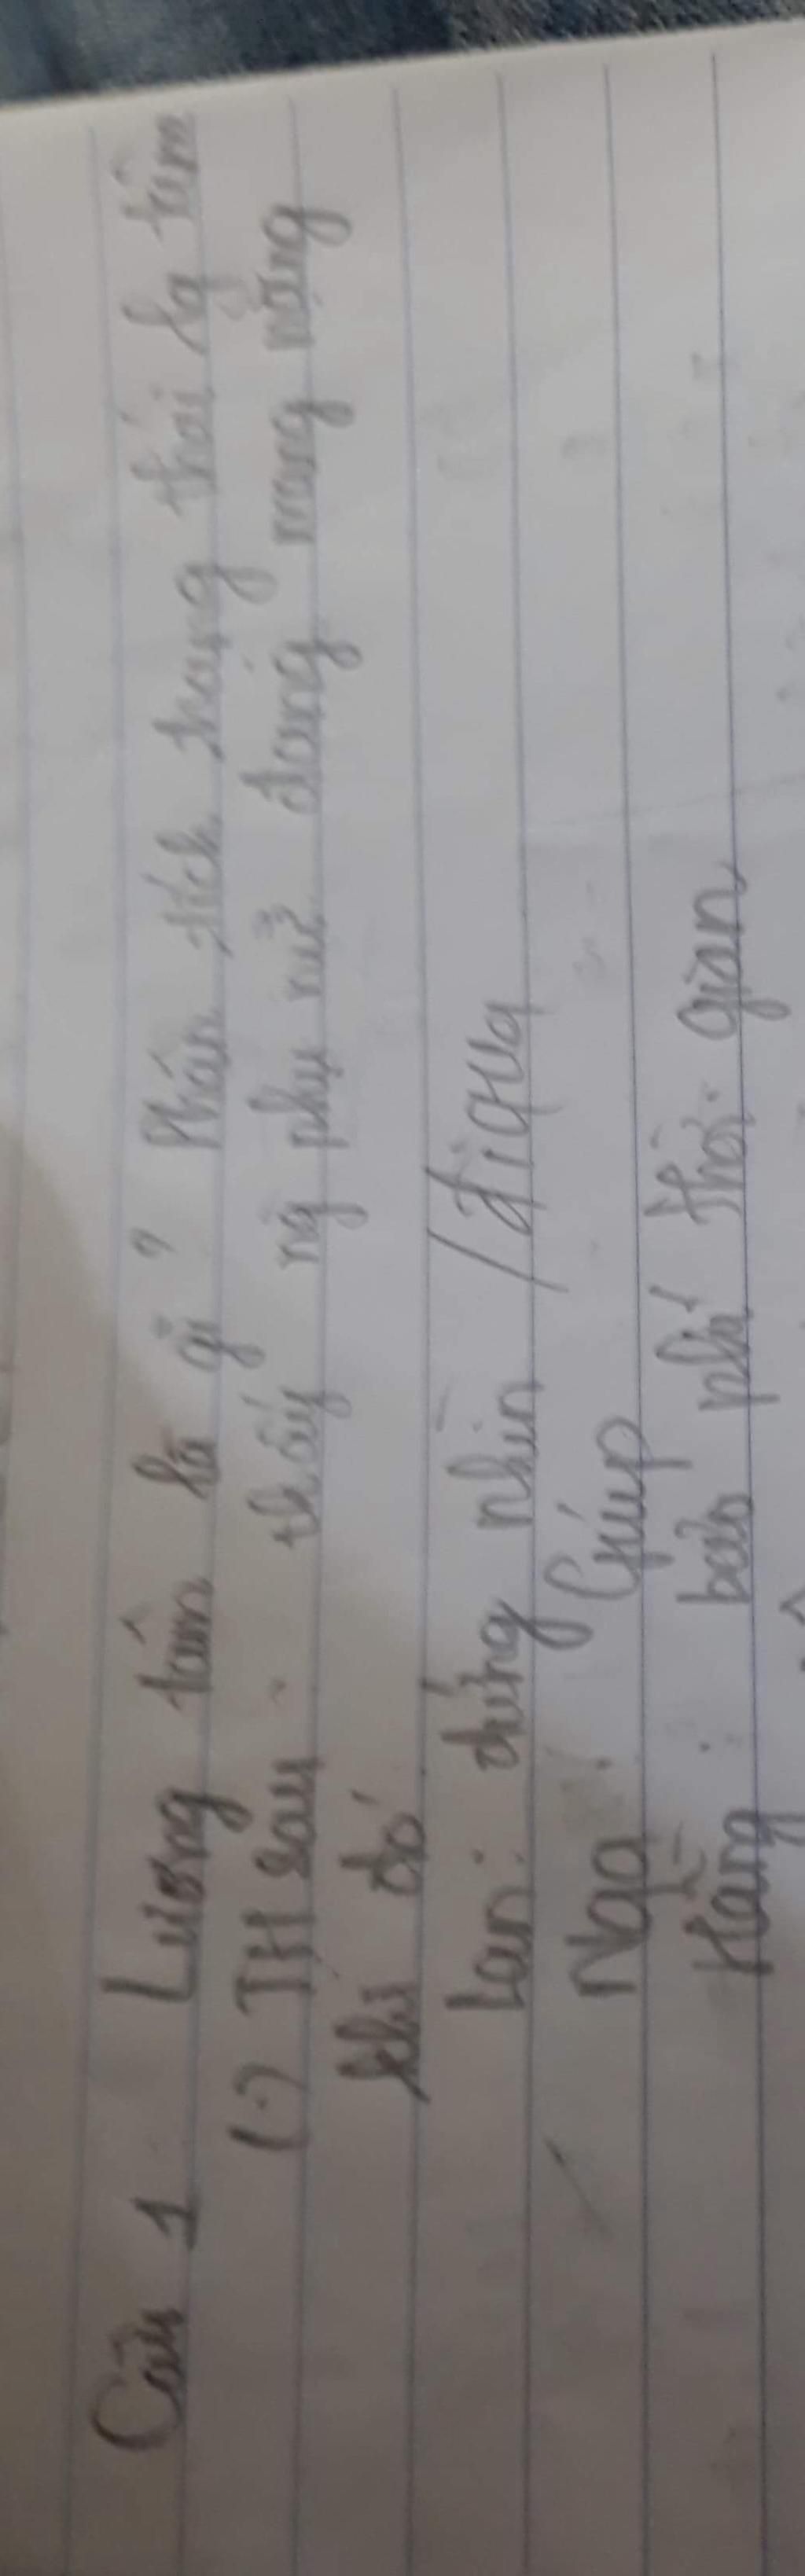 Câu 1 Lương tâm là gì? Phân tích trạng thái lg tâm
(?) TH sau: thấy ng phụ nữ đang mang nặng
khi đó
Lan: đứng nhìn / đi qua
Nga: Giúp
Hằng: bảo phí thời gian